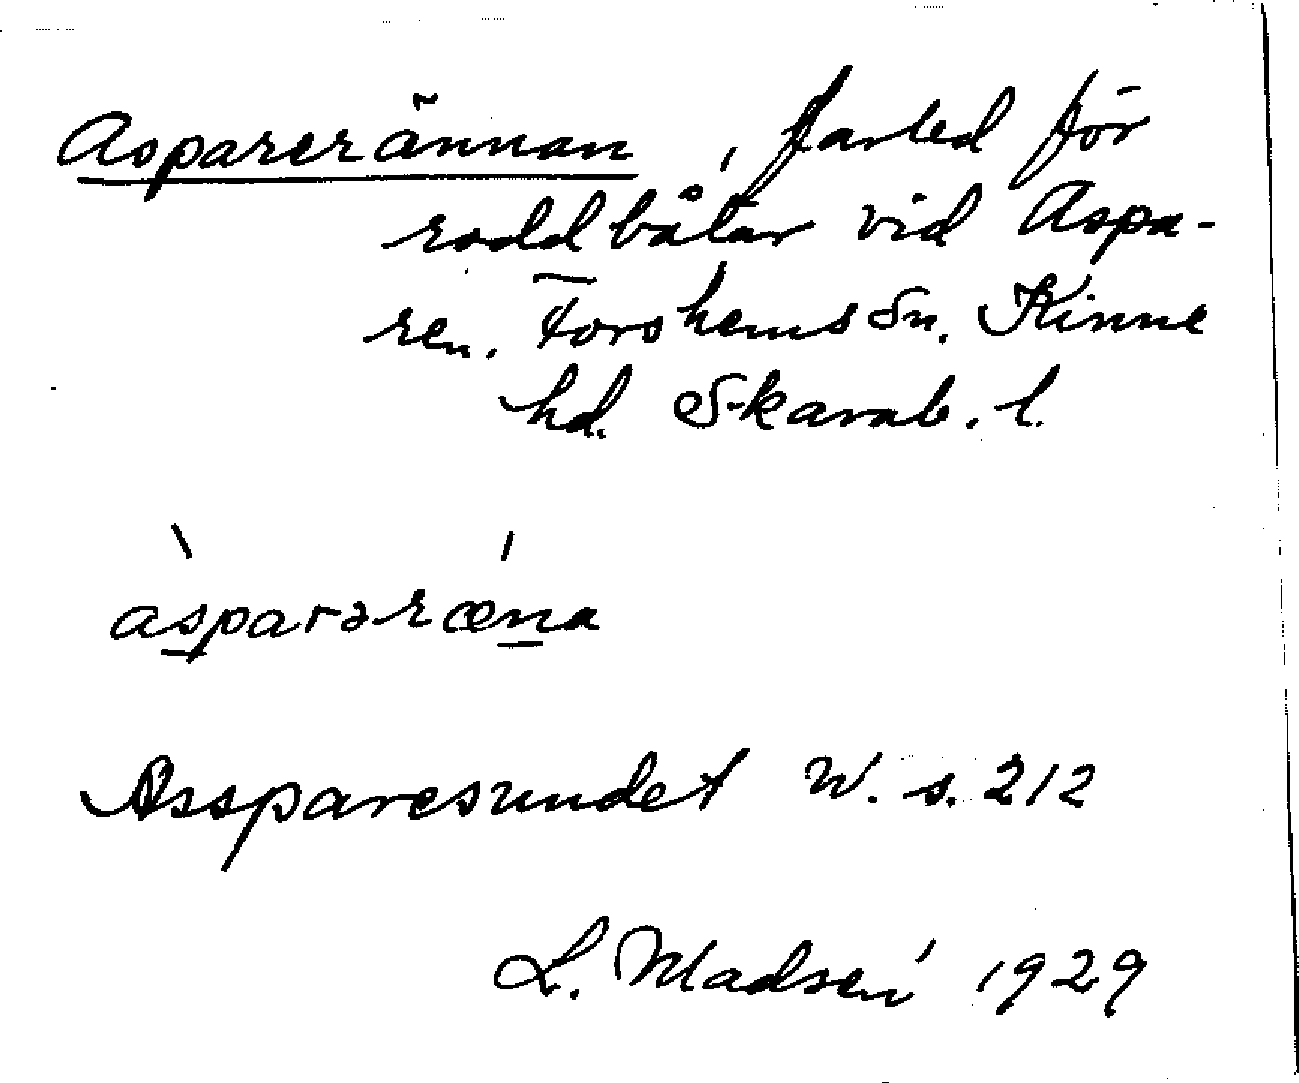 Asparerännan, farled för
roddbåtar vid Aspa-
ren. Forshems sn. Kinne
hd. Skarab. l.
àspararǽna
Assparesundet W. s. 212
L. Madsén 1929